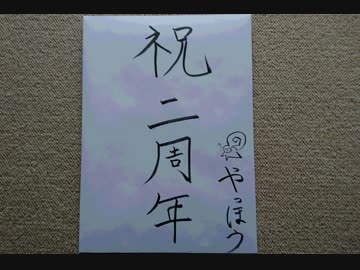 祝二周年
やっほう